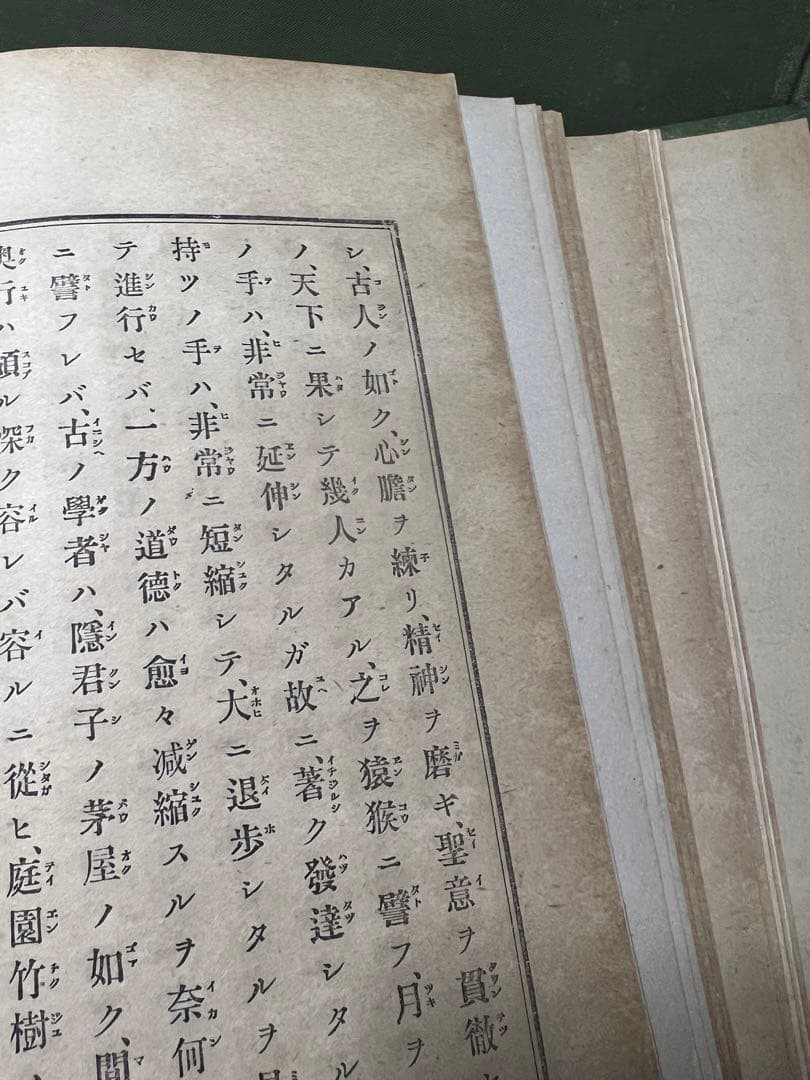 シ、古人ノ如ク、心膽ヲ練リ、精神ヲ磨ギ、聖意ヲ貫徹
ノ、天下ニ果シテ幾人カアル、之ヲ猿猴ニ譬フ、月ヲ
ノ手ハ、非常ニ延伸シタルガ故ニ、著ク發達シタル
持ツノ手ハ、非常ニ短縮シテ、大ニ退歩シタルヲ
テ進行セバ、一方ノ道德ハ愈々减縮スルヲ奈何
ニ譬フレバ、古ノ學者ハ、隱君子ノ茅屋ノ如ク、間
奥行ハ頗ル深ク容レバ容ルニ從ヒ、庭園竹樹